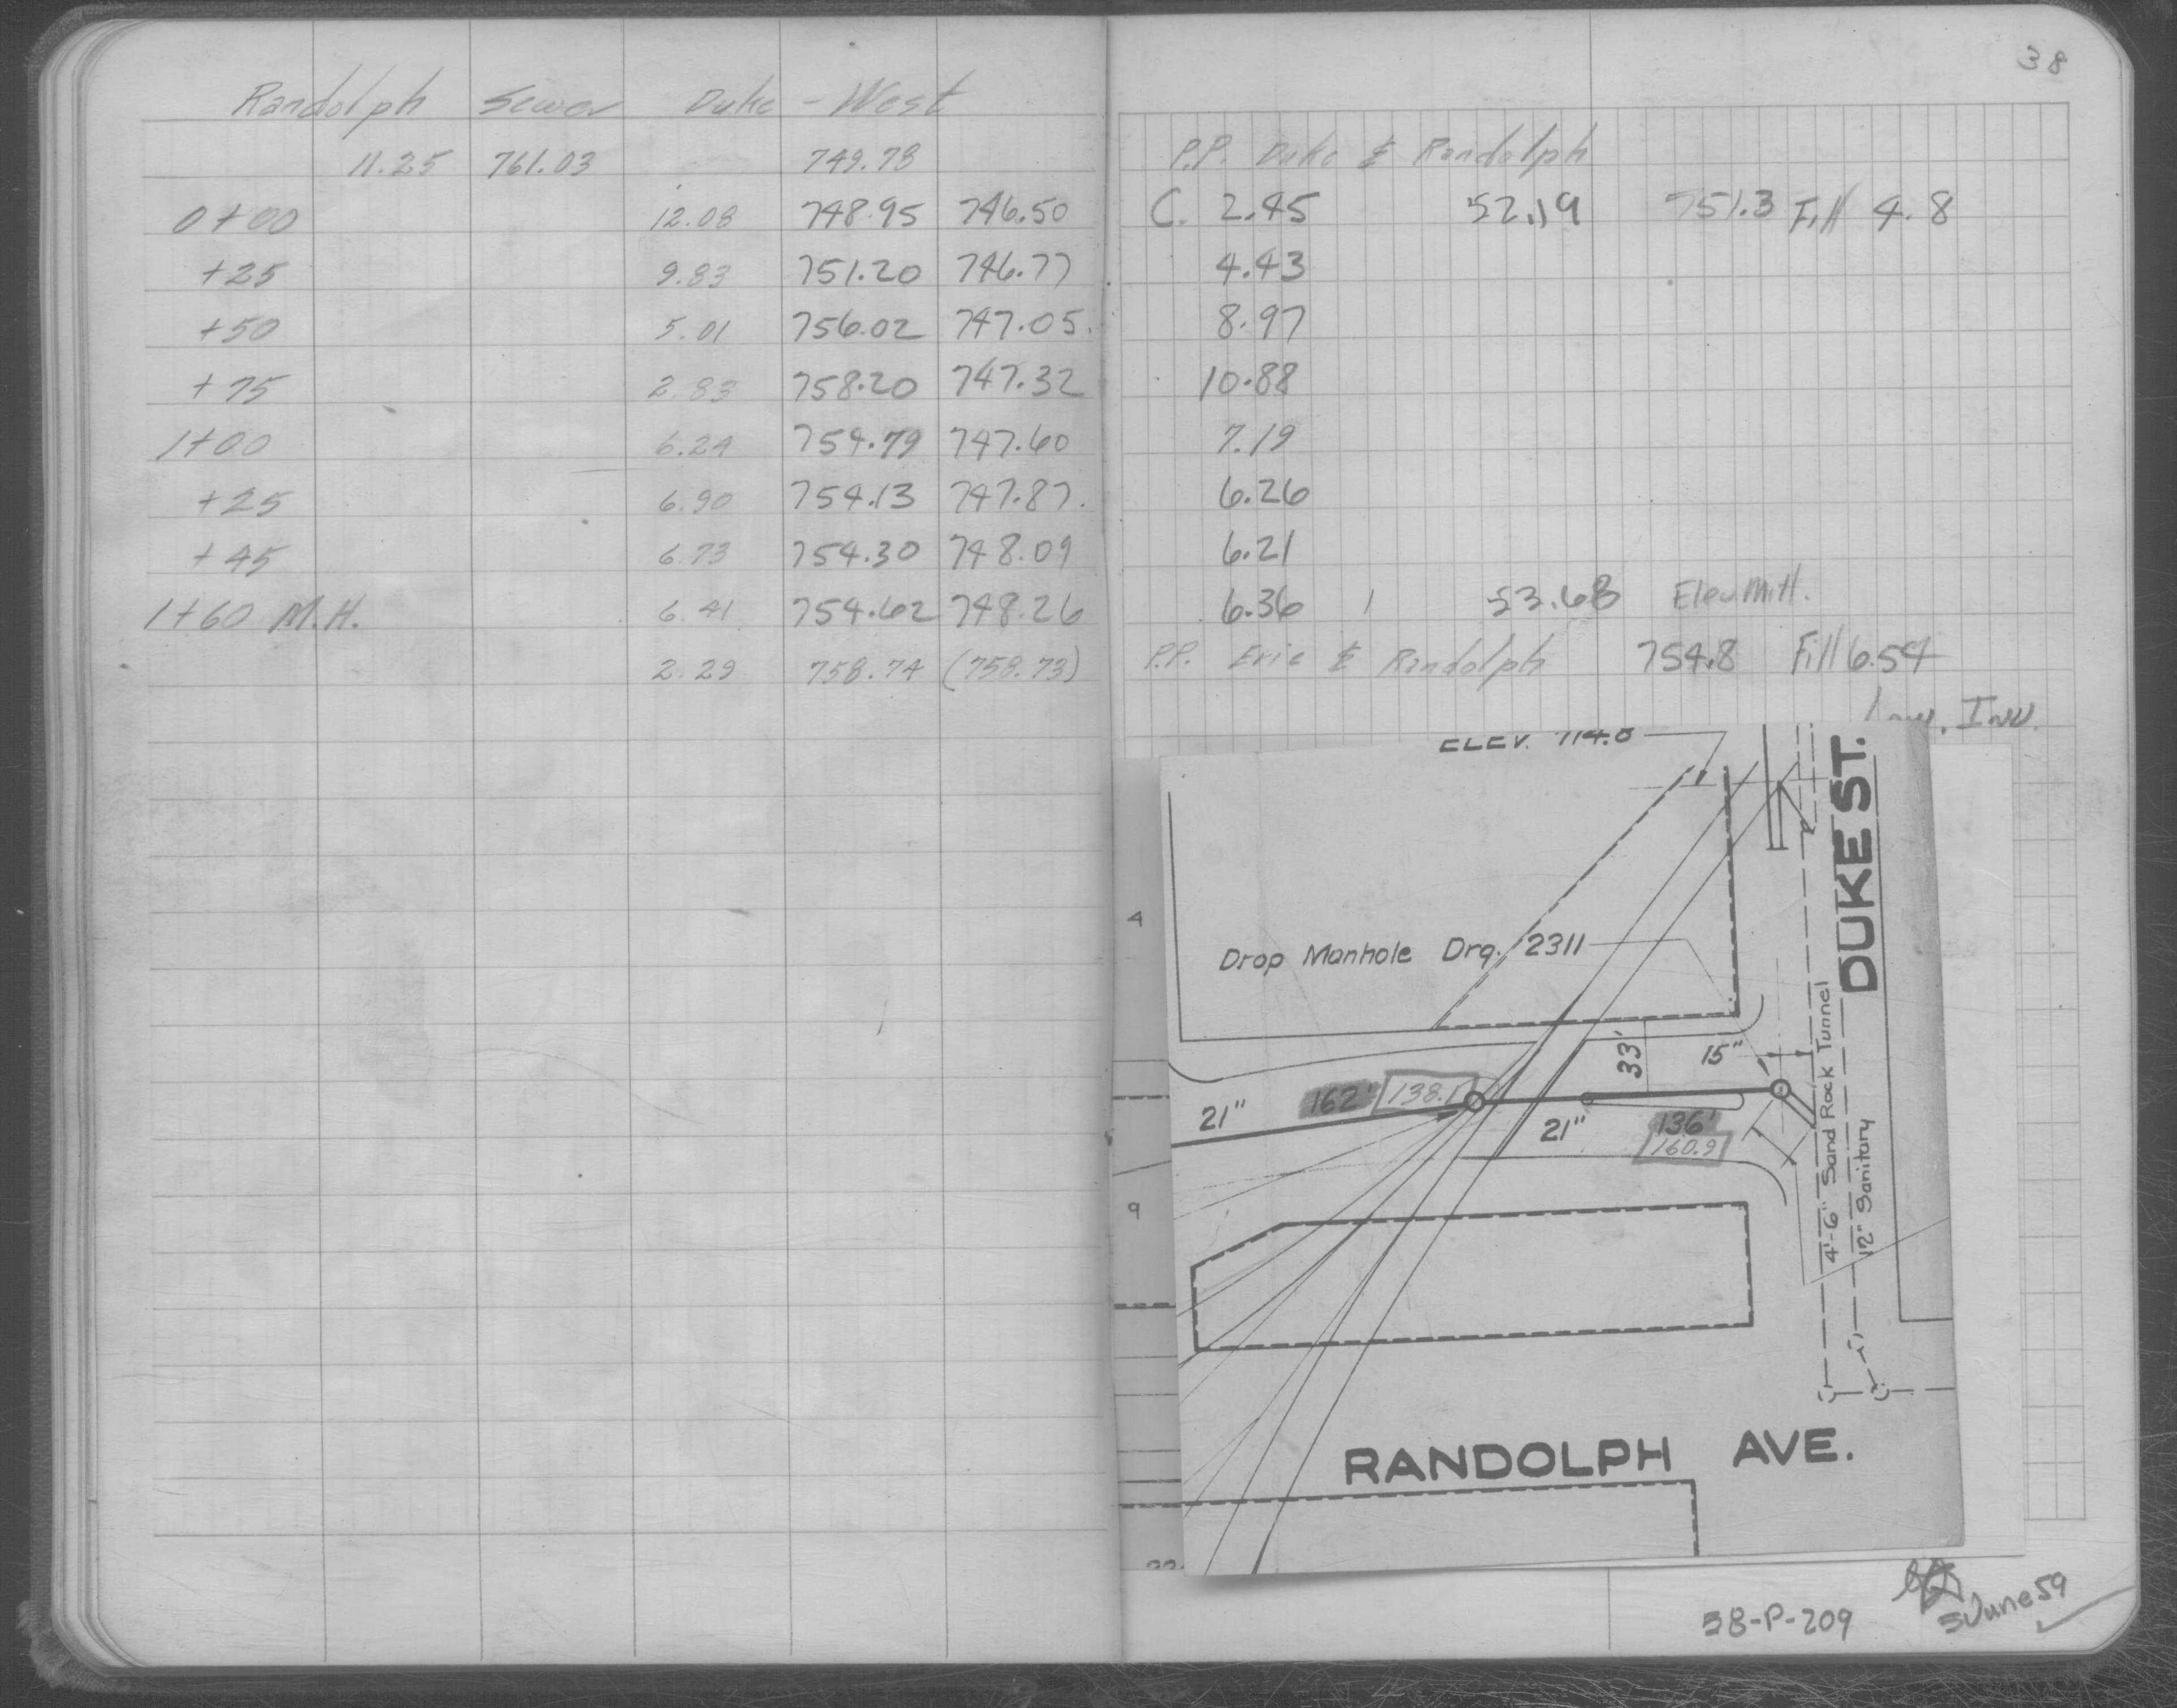 38
Randolph Sewer Duke - West
11.25 761.03 749.78 P.P. Duke & Randolph
0+00 12.08 748.95 746.50 C. 2.45 52.19 751.3 Fill 4.8
+25 9.83 751.20 746.77 4.43
+50 5.01 756.02 747.05 8.97
+75 2.83 758.20 747.32 10.88
1+00 6.24 754.79 747.60 7.19
+25 6.90 754.13 747.87 6.26
+45 6.73 754.30 748.09 6.21
1+60 M.H. 6.41 754.62 748.26 6.36 53.68 Elev M.H.
2.29 758.74 (758.73) P.P. Erie & Randolph 754.8 Fill 6.54
Inv.
ELEV. 714.8
DUKE ST.
4
Drop Manhole Drg. 2311
33'
15"
162' 138.1
21"
21"
136'
160.9
4'-6" Sand Rock Tunnel
12" Sanitary
9
RANDOLPH AVE.
38-P-209
3 June 59